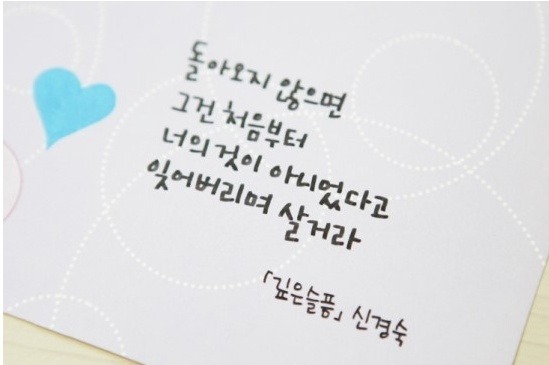 돌아오지 않으면
그건 처음부터
너의것이 아니었다고
잊어버리며 살거라
「깊은슬픔」 신경숙